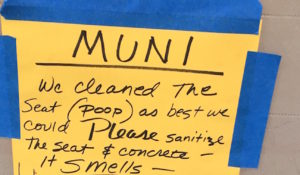 MUNI
We cleaned The
Seat (poop) as best we
could Please sanitize
The seat & concrete -
It smells -